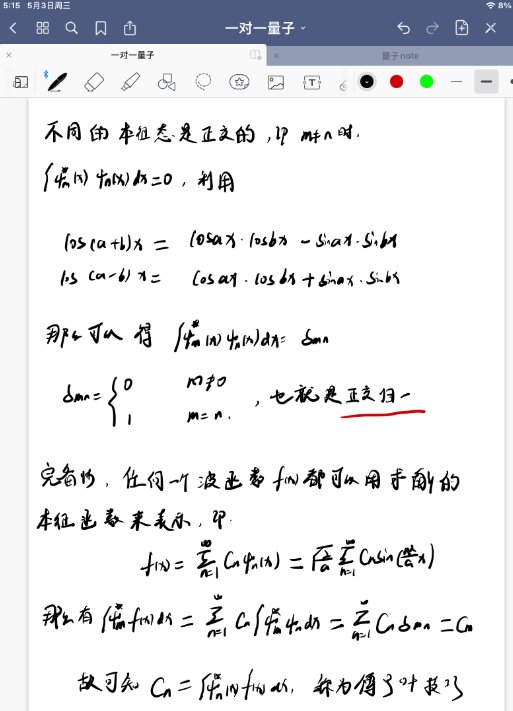 5:15 5月3日周三
8%
一对一量子
一对一量子
量子note
不同的本征态是正交的,即 m≠n时.
∫ψₘ*(x) ψₙ(x)dx=0,利用
cos(a+b)x = cosax·cosbx − sinax·sinbx
cos(a-b)x = cosax·cosbx + sinax·sinbx
那么可以得 ∫ψₘ*(x)ψₙ(x)dx= δmn
δmn= { 0 m≠0
1 m=n. ,也就是正交归一
完备性,任何一个波函数f(x)都可以用求解的
本征函数来表示,即.
f(x)= ∑_{n=1}^∞ Cnψₙ(x) = √(2/a) ∑_{n=1}^∞ Cnsin(nπ/a x)
那么有∫ψₘ*f(x)dx = ∑_{n=1}^∞ Cn∫ψₘ*ψₙdx = ∑_{n=1}^∞ Cnδmn = Cn
故可知 Cn = ∫ψₙ*(x)f(x)dx, 称为傅了叶技巧